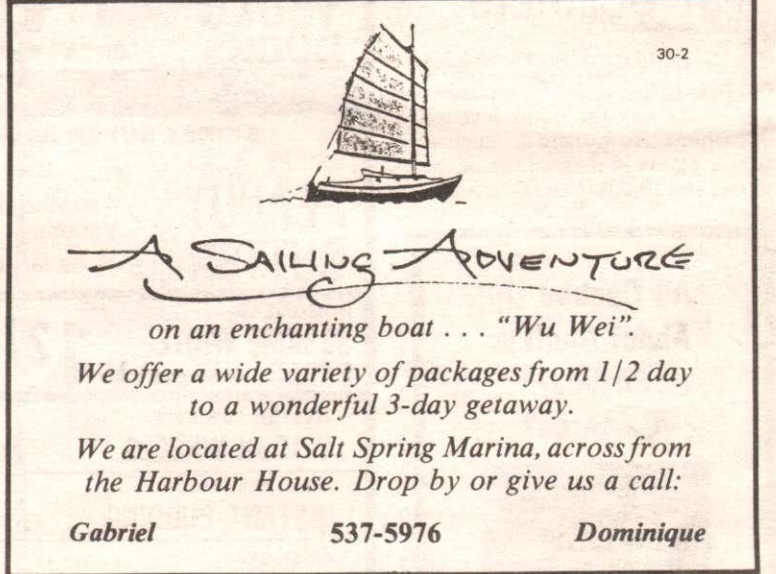 30-2
A SAILING ADVENTURE
on an enchanting boat . . . "Wu Wei".
We offer a wide variety of packages from 1/2 day
to a wonderful 3-day getaway.
We are located at Salt Spring Marina, across from
the Harbour House. Drop by or give us a call:
Gabriel 537-5976 Dominique